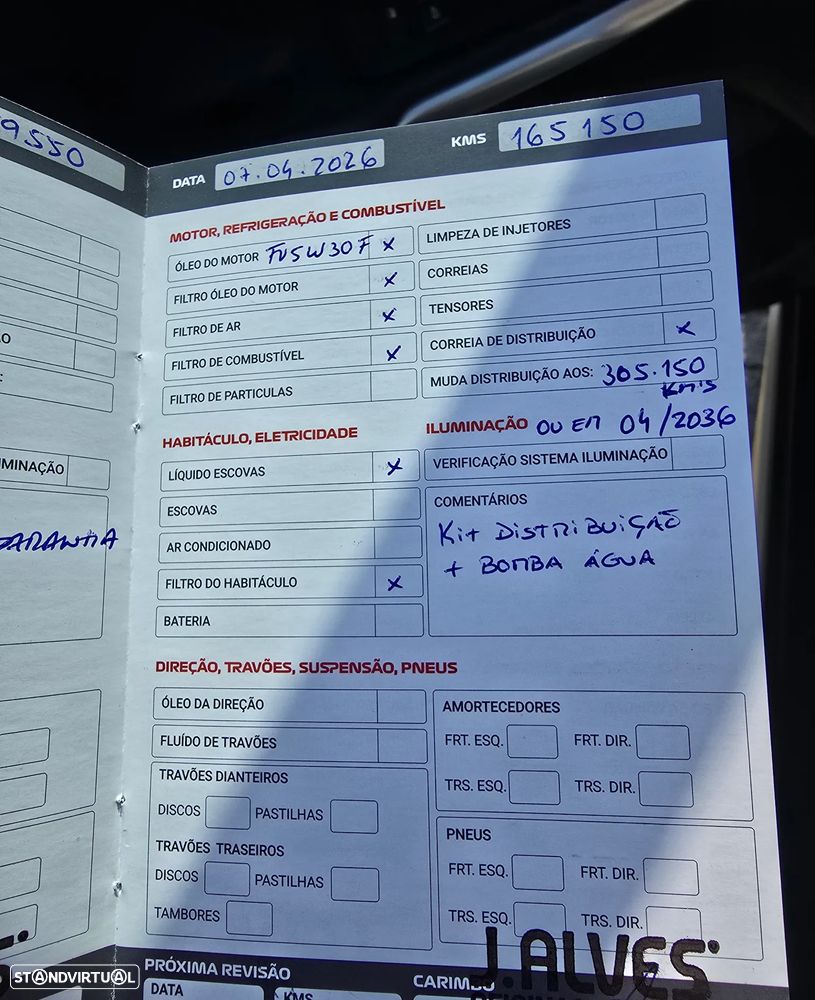 9550
DATA 07.04.2026 KMS 165 150
MOTOR, REFRIGERAÇÃO E COMBUSTÍVEL
ÓLEO DO MOTOR FV5W30F x
LIMPEZA DE INJETORES
FILTRO ÓLEO DO MOTOR x
CORREIAS
FILTRO DE AR x
TENSORES
FILTRO DE COMBUSTÍVEL x
CORREIA DE DISTRIBUIÇÃO x
FILTRO DE PARTICULAS
MUDA DISTRIBUIÇÃO AOS: 305.150
KM'S
HABITÁCULO, ELETRICIDADE
ILUMINAÇÃO OU EM 04/2036
LÍQUIDO ESCOVAS x
VERIFICAÇÃO SISTEMA ILUMINAÇÃO
ESCOVAS
COMENTÁRIOS
Kit DISTRIBUIÇÃO
+ BOMBA ÁGUA
AR CONDICIONADO
FILTRO DO HABITÁCULO x
BATERIA
MINAÇÃO
GARANTIA
DIREÇÃO, TRAVÕES, SUSPENSÃO, PNEUS
ÓLEO DA DIREÇÃO
FLUÍDO DE TRAVÕES
TRAVÕES DIANTEIROS
DISCOS PASTILHAS
TRAVÕES TRASEIROS
DISCOS PASTILHAS
TAMBORES
AMORTECEDORES
FRT. ESQ. FRT. DIR.
TRS. ESQ. TRS. DIR.
PNEUS
FRT. ESQ. FRT. DIR.
TRS. ESQ. TRS. DIR.
J.ALVES
PRÓXIMA REVISÃO
DATA KMS
CARIMBO
STANDVIRTUAL